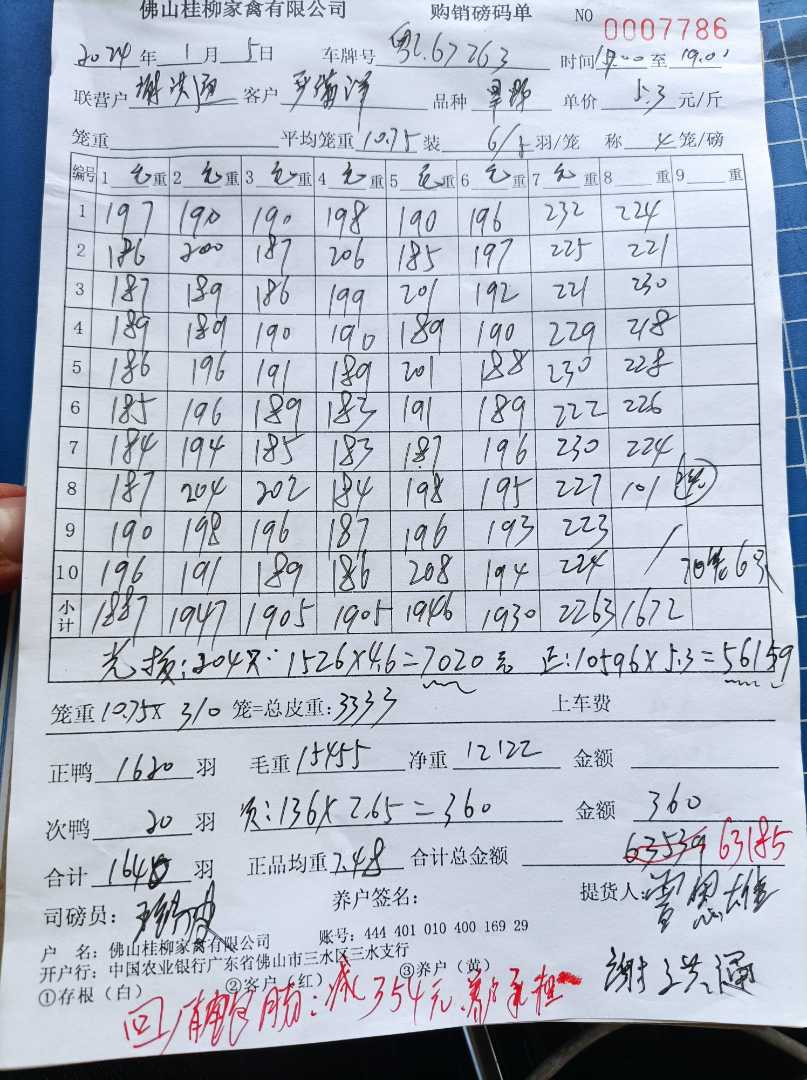 佛山桂柳家禽有限公司 购销磅码单 NO 0007786
2024年 1月 5日 车牌号 粤L67263 时间 至 19:0
联营户 谢洪通 客户 海洋 品种 单价 5.3 元/斤
笼重 平均笼重 10.75 装 6/ 羽/笼 称 4 笼/磅
编号 1 毛 重 2 毛 重 3 毛 重 4 毛 重 5 毛 重 6 毛 重 7 毛 重 8 重 9 重
1 197 190 190 198 190 196 232 224
2 186 200 187 206 185 197 225 221
3 187 189 186 199 201 192 221 230
4 189 189 190 190 189 190 229 218
5 186 196 191 189 201 188 230 228
6 185 196 189 183 191 189 222 226
7 184 194 185 183 187 196 230 224
8 187 204 202 184 198 195 227 101
9 190 198 196 187 196 193 223
10 196 191 189 186 208 194 224
小计 1887 1947 1905 1905 1946 1930 2263 1672
204只: 1526×4.6=7020元 正:10596×5.3=56159
笼重 10.75× 310 笼=总皮重: 3333 上车费
正鸭 1620 羽 毛重 15455 净重 12122 金额
次鸭 20 羽 次:136×2.65=360 金额 360
合计 1640 羽 正品均重 7.48 合计总金额 63539 63185
司磅员: 养户签名: 提货人:
户 名: 佛山桂柳家禽有限公司 账号: 444 401 010 400 169 29
开户行: 中国农业银行广东省佛山市三水区三水支行
①存根（白） ②客户（红） ③养户（黄） 谢洪通
回厂 减354元 养户承担